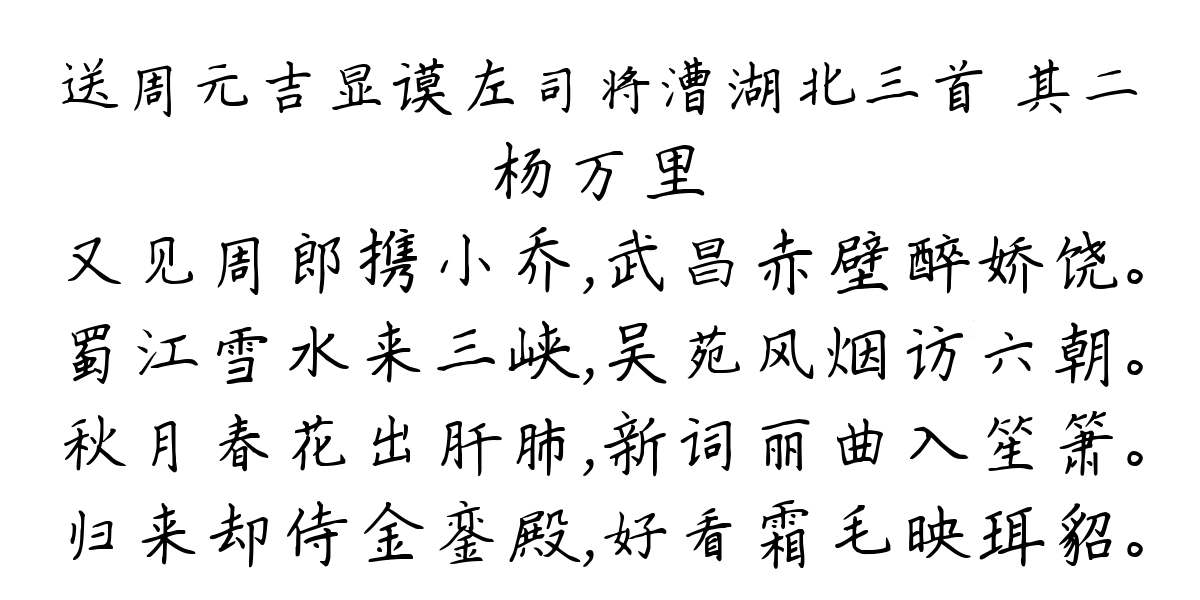 送周元吉显谟左司将漕湖北三首 其二
杨万里
又见周郎携小乔,武昌赤壁醉娇饶。
蜀江雪水来三峡,吴苑风烟访六朝。
秋月春花出肝肺,新词丽曲入笙箫。
归来却侍金銮殿,好看霜毛映珥貂。